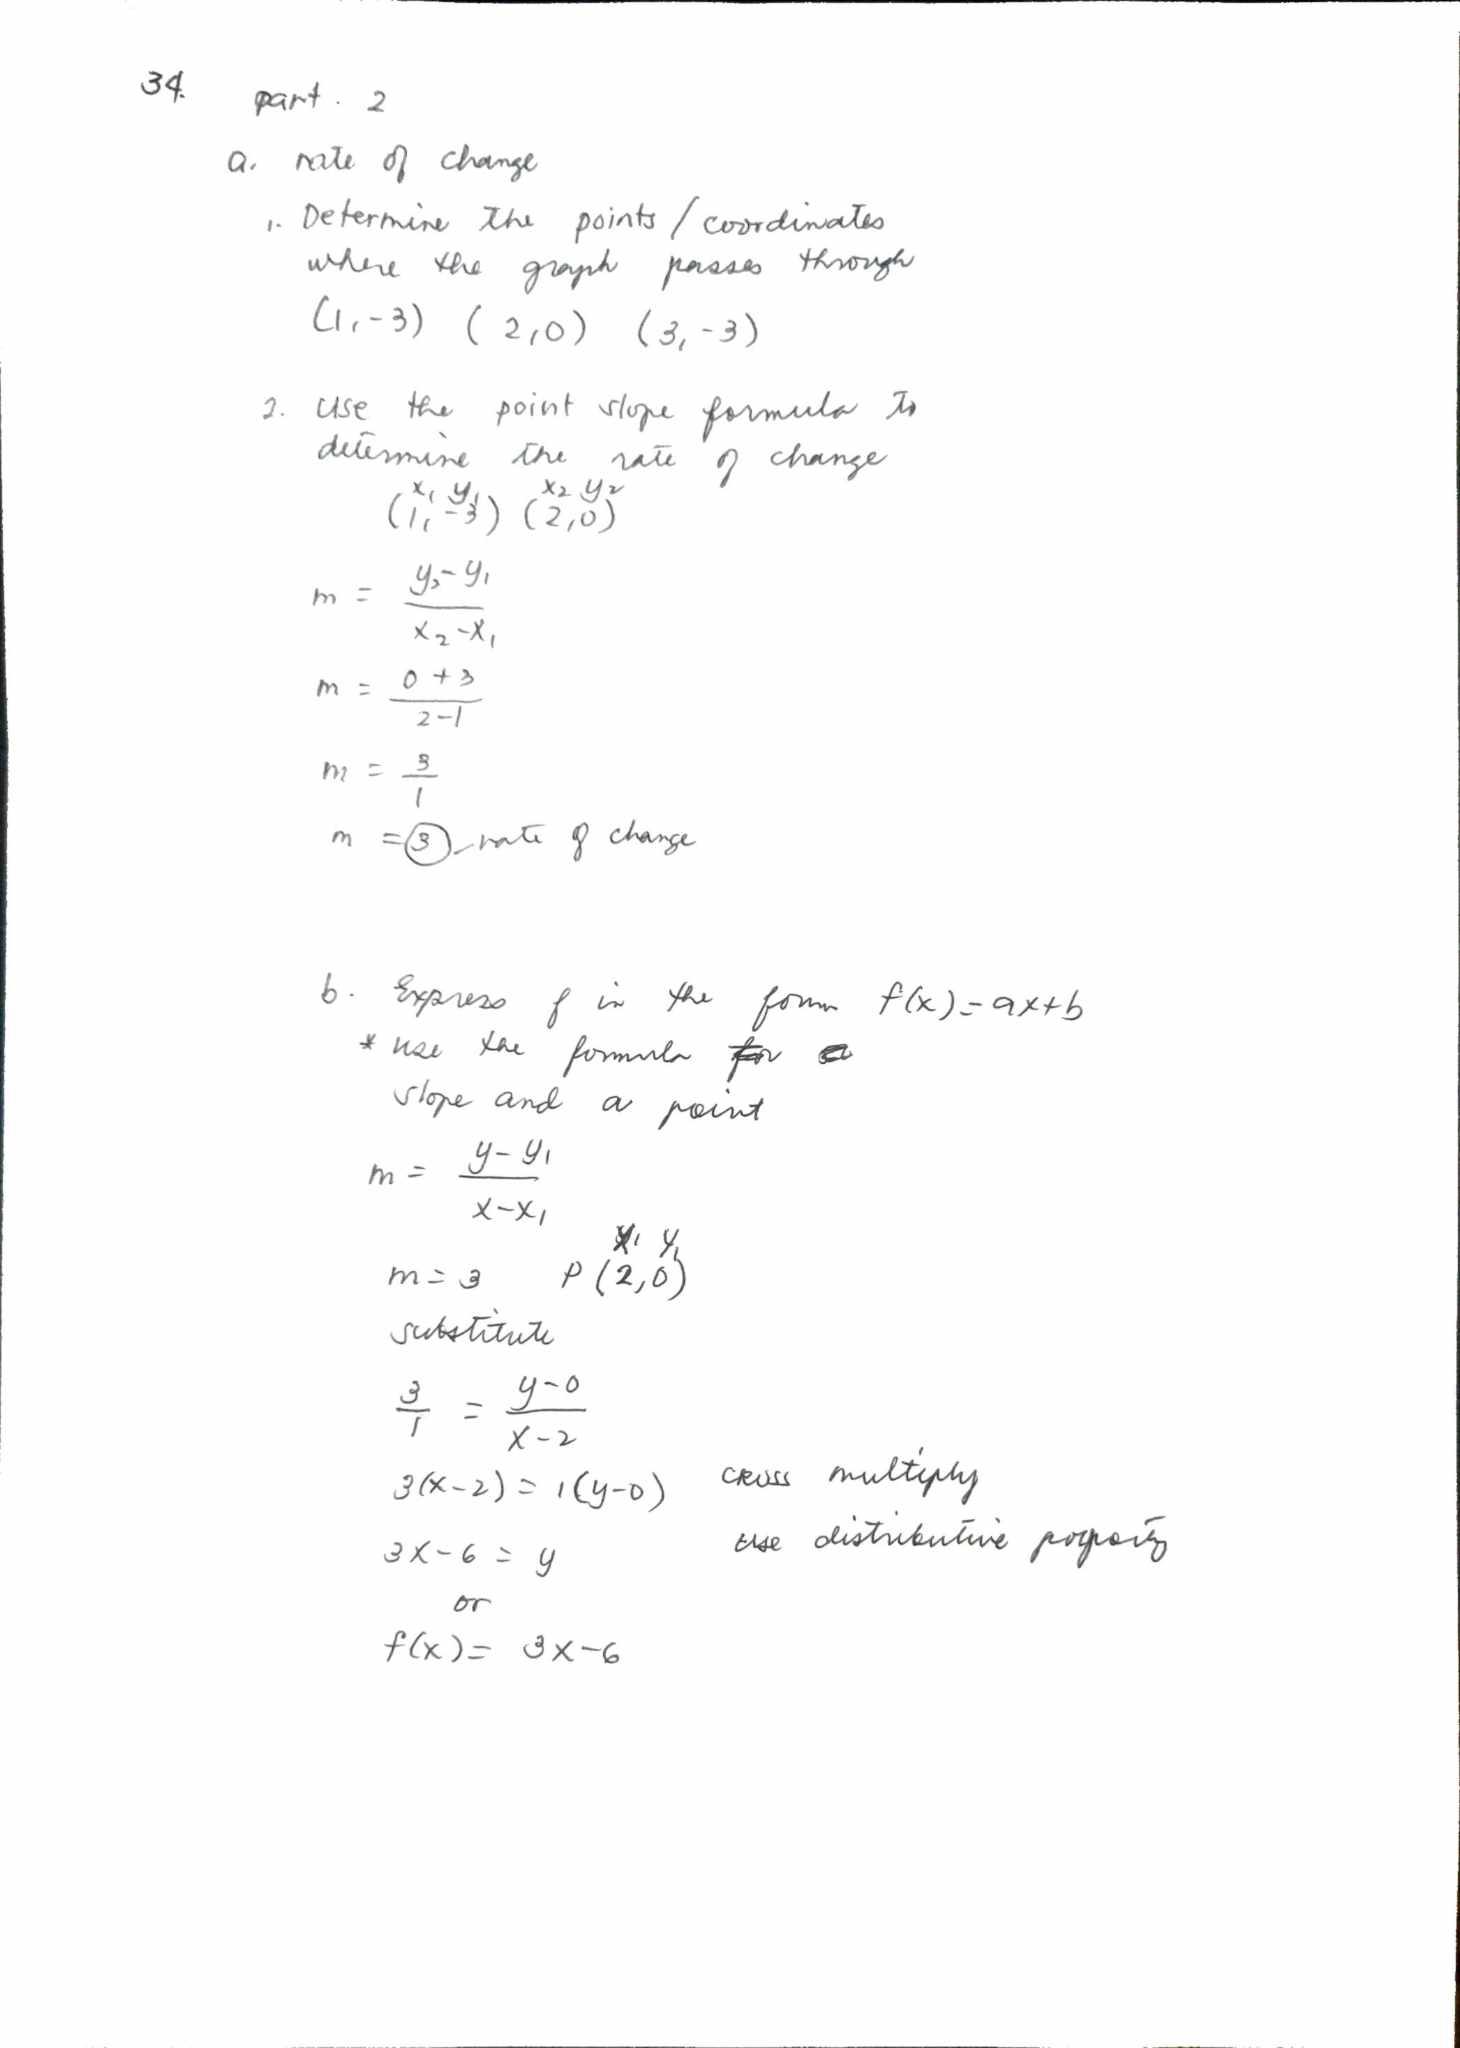 34. part. 2
a. rate of change
1. Determine the points/coordinates
where the graph passes through
(1,-3) (2,0) (3,-3)
2. Use the point slope formula to
determine the rate of change
x₁ y₁ x₂ y₂
(1,-3) (2,0)
m = y₂-y₁
x₂-x₁
m = 0+3
2-1
m = 3
1
m = 3 rate of change
b. Express f in the form f(x)=ax+b
* use the formula for a
slope and a point
m = y-y₁
x-x₁
x₁ y₁
m=3 P(2,0)
substitute
3 = y-0
1 x-2
3(x-2)=1(y-0) cross multiply
3x-6=y use distributive
or
f(x)= 3x-6